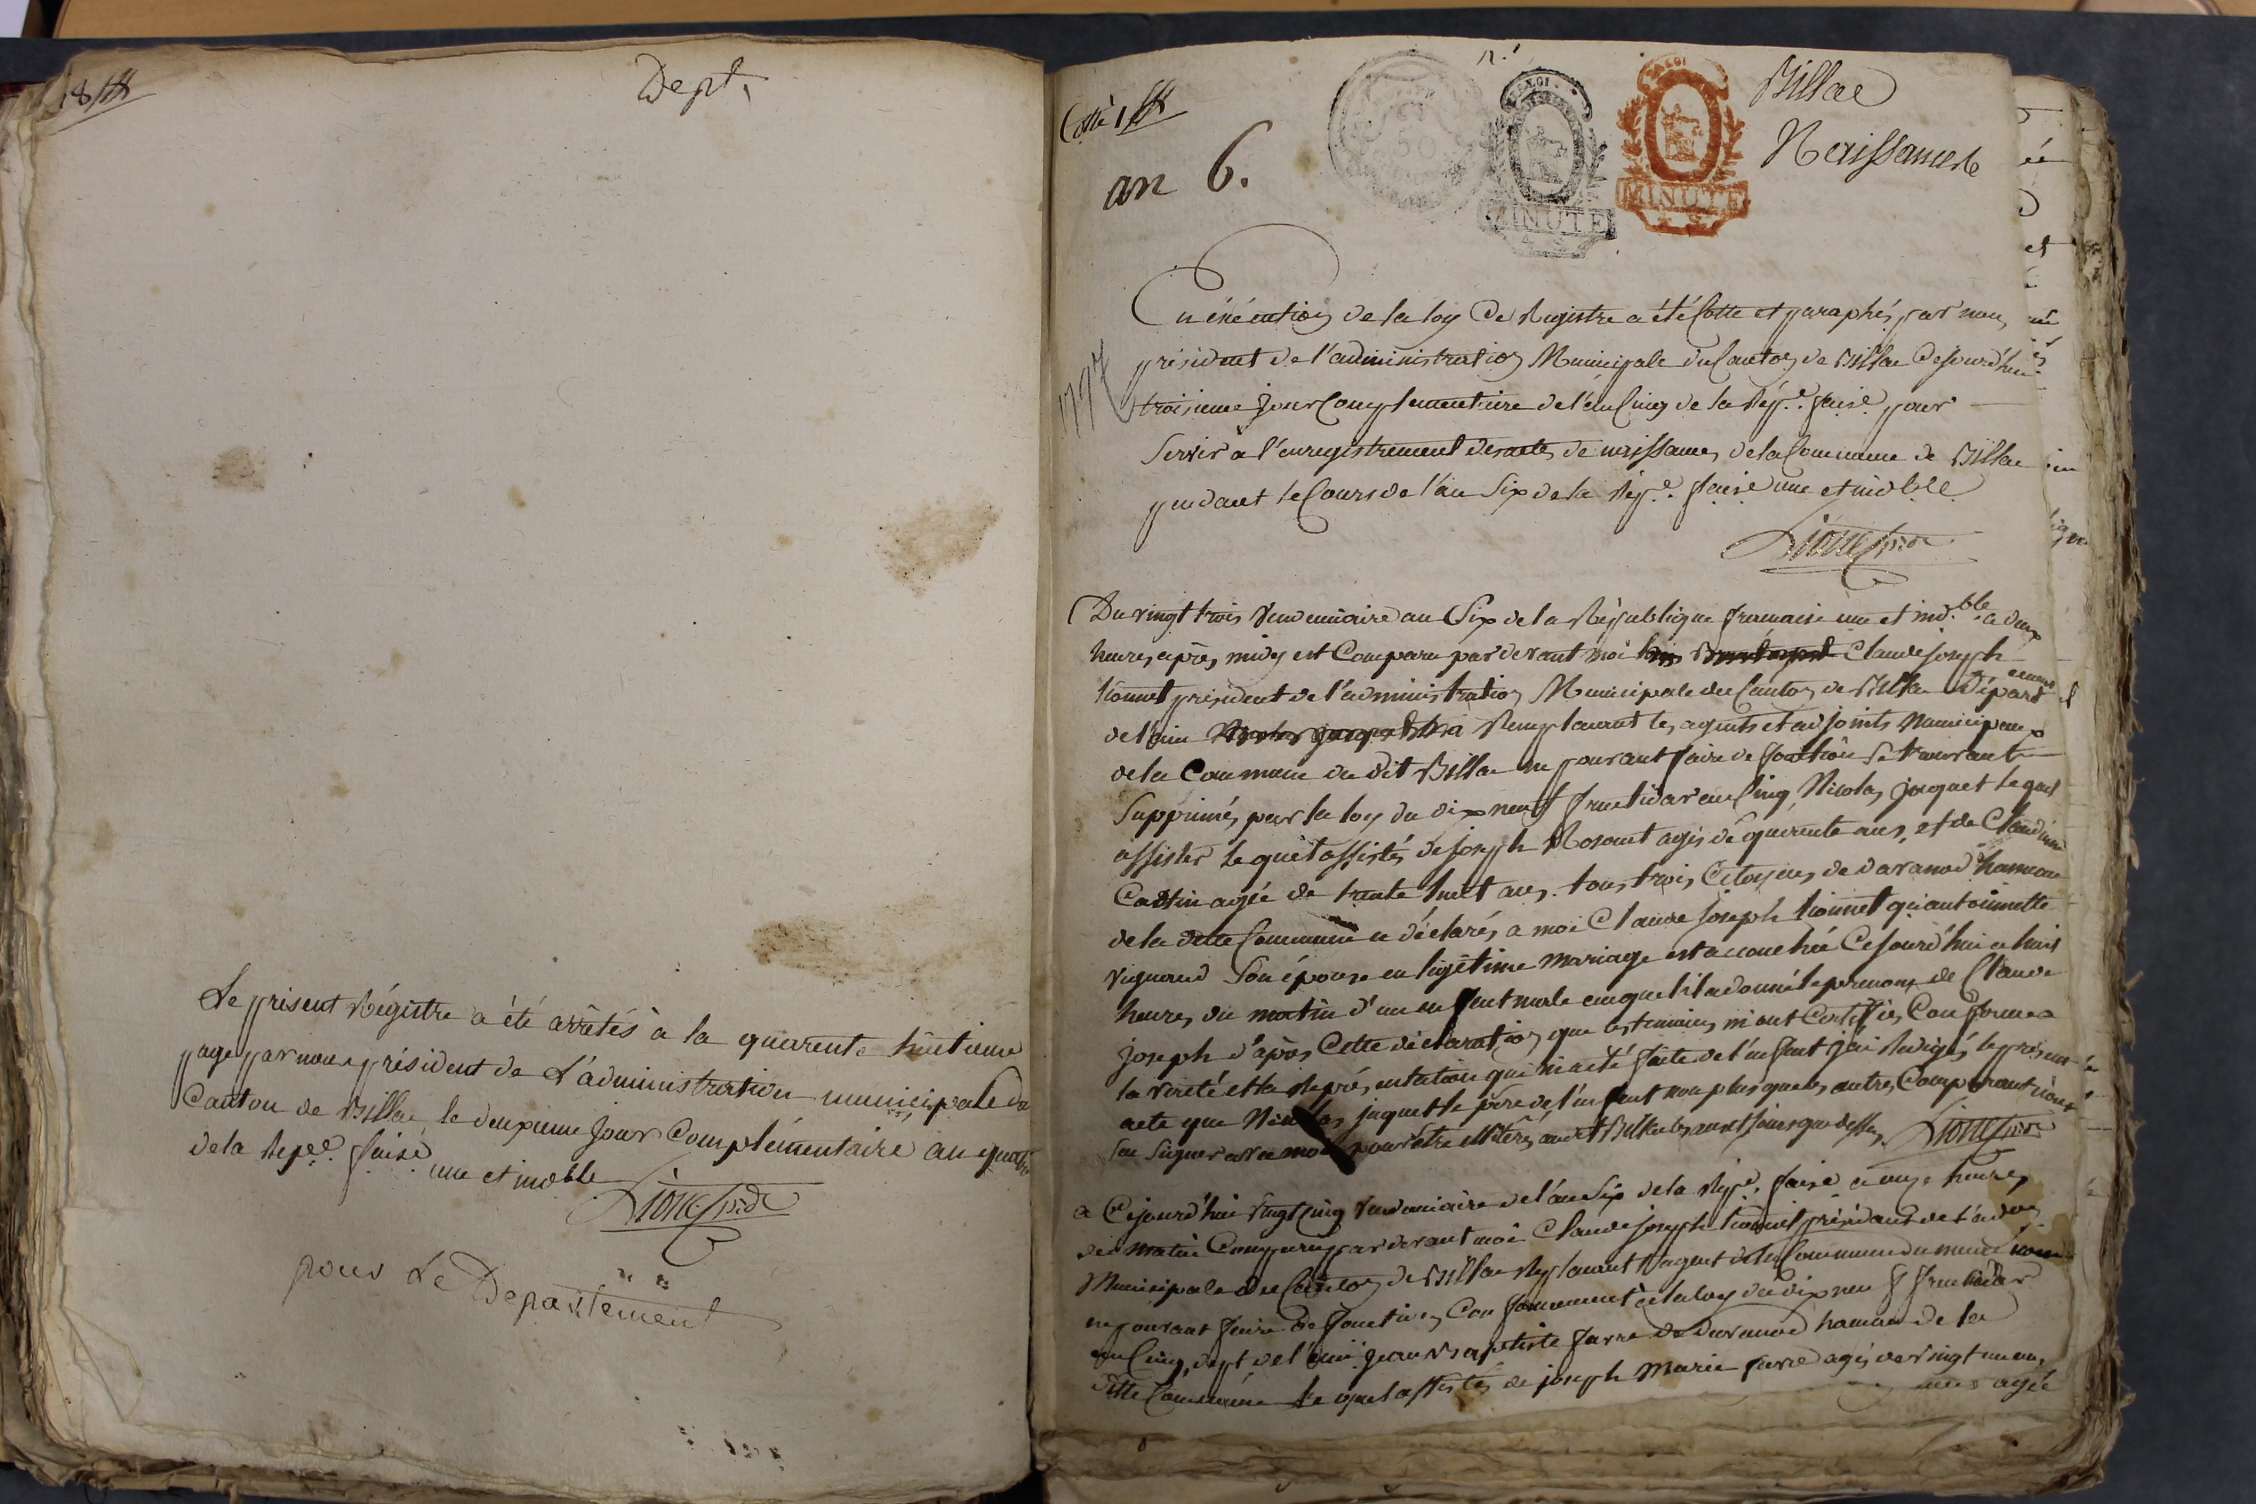 Dept.
Le present Régistre a été arrêtés à la quarente huitieme
page par nous président de L'administration municipale du
Canton de Billac, le deuxieme jour Complémentaire an quatre
de la Repe. faise une et indble
Lionet prdt
pour Le Departement
Cotté 1
an 6.
1797
MINUTE
MINUTE
Naissances
En éxécution de la loy Ce Registre a été Cotté et paraphés par nous
président de l'administration Municipale du Canton de Billac Cejourd'hui
troisieme jour Complementaire de l'an Cinq de la Rép.e faise pour
Servir a l'enregistrement des actes de naissances de la Commune de Billac
pendant le Cours de l'an Six de la Rép.e faise une et indble
Lionet prdt
Du vingt trois Vendemiaire an Six de la République francaise une et ind.ble a deux
heures après midy est Comparu par devant moi Claude joseph
Lionnet président de l'administration Municipale du Canton de Billac Département
de l'ain Remplacant les agents et adjoints Municipaux
de la Commune du dit Billac ne pouvant faire de fonction Se trouvant
Supprimés par la loy du dix neuf fructidor an Cinq, Nicolas jaquet lequel
assister le quel assistés de joseph Rosant agés de quarente ans, et de Claudine
agée de trente huit ans. tous trois Citoyens de davanod hameau
de la dette Commune a déclarés a moi Claude joseph Lionnet qu'antoinette
vignerud Son épouse en légitime mariage est accouchée Cejourd'hui a huit
heures du matin d'un enfant male auquel il a donné le prenom de Claude
joseph d'après Cette déclaration que les temoins m'ont Certifiés Conforme a
la verité et la Représentation qui m'a été faite de l'enfant j'ai Redigés le présent
acte que Nicolas jaquet le père de l'enfant non plus que les autres Comparants n'ont
Su Signer avec moi les an et jours que dessus Lionet prdt
a Cejourd'hui Vingt Cinq Vendemiaire de l'an Six de la Rép.e faise a onze heures
du matin Comparu par devant moi Claude joseph Lionnet président de l'adon
Municipale du Canton de Billac Remplacant l'agent de la Commune du même nom
ne pouvant faire de fonction Conformement a la loy du dix neuf fructidor
an Cinq, dept de l'ain jean Baptiste farre de davanod hameau de la
ditte Commune le quel assistés de joseph Marie farre agés de vingt un ans,
agée